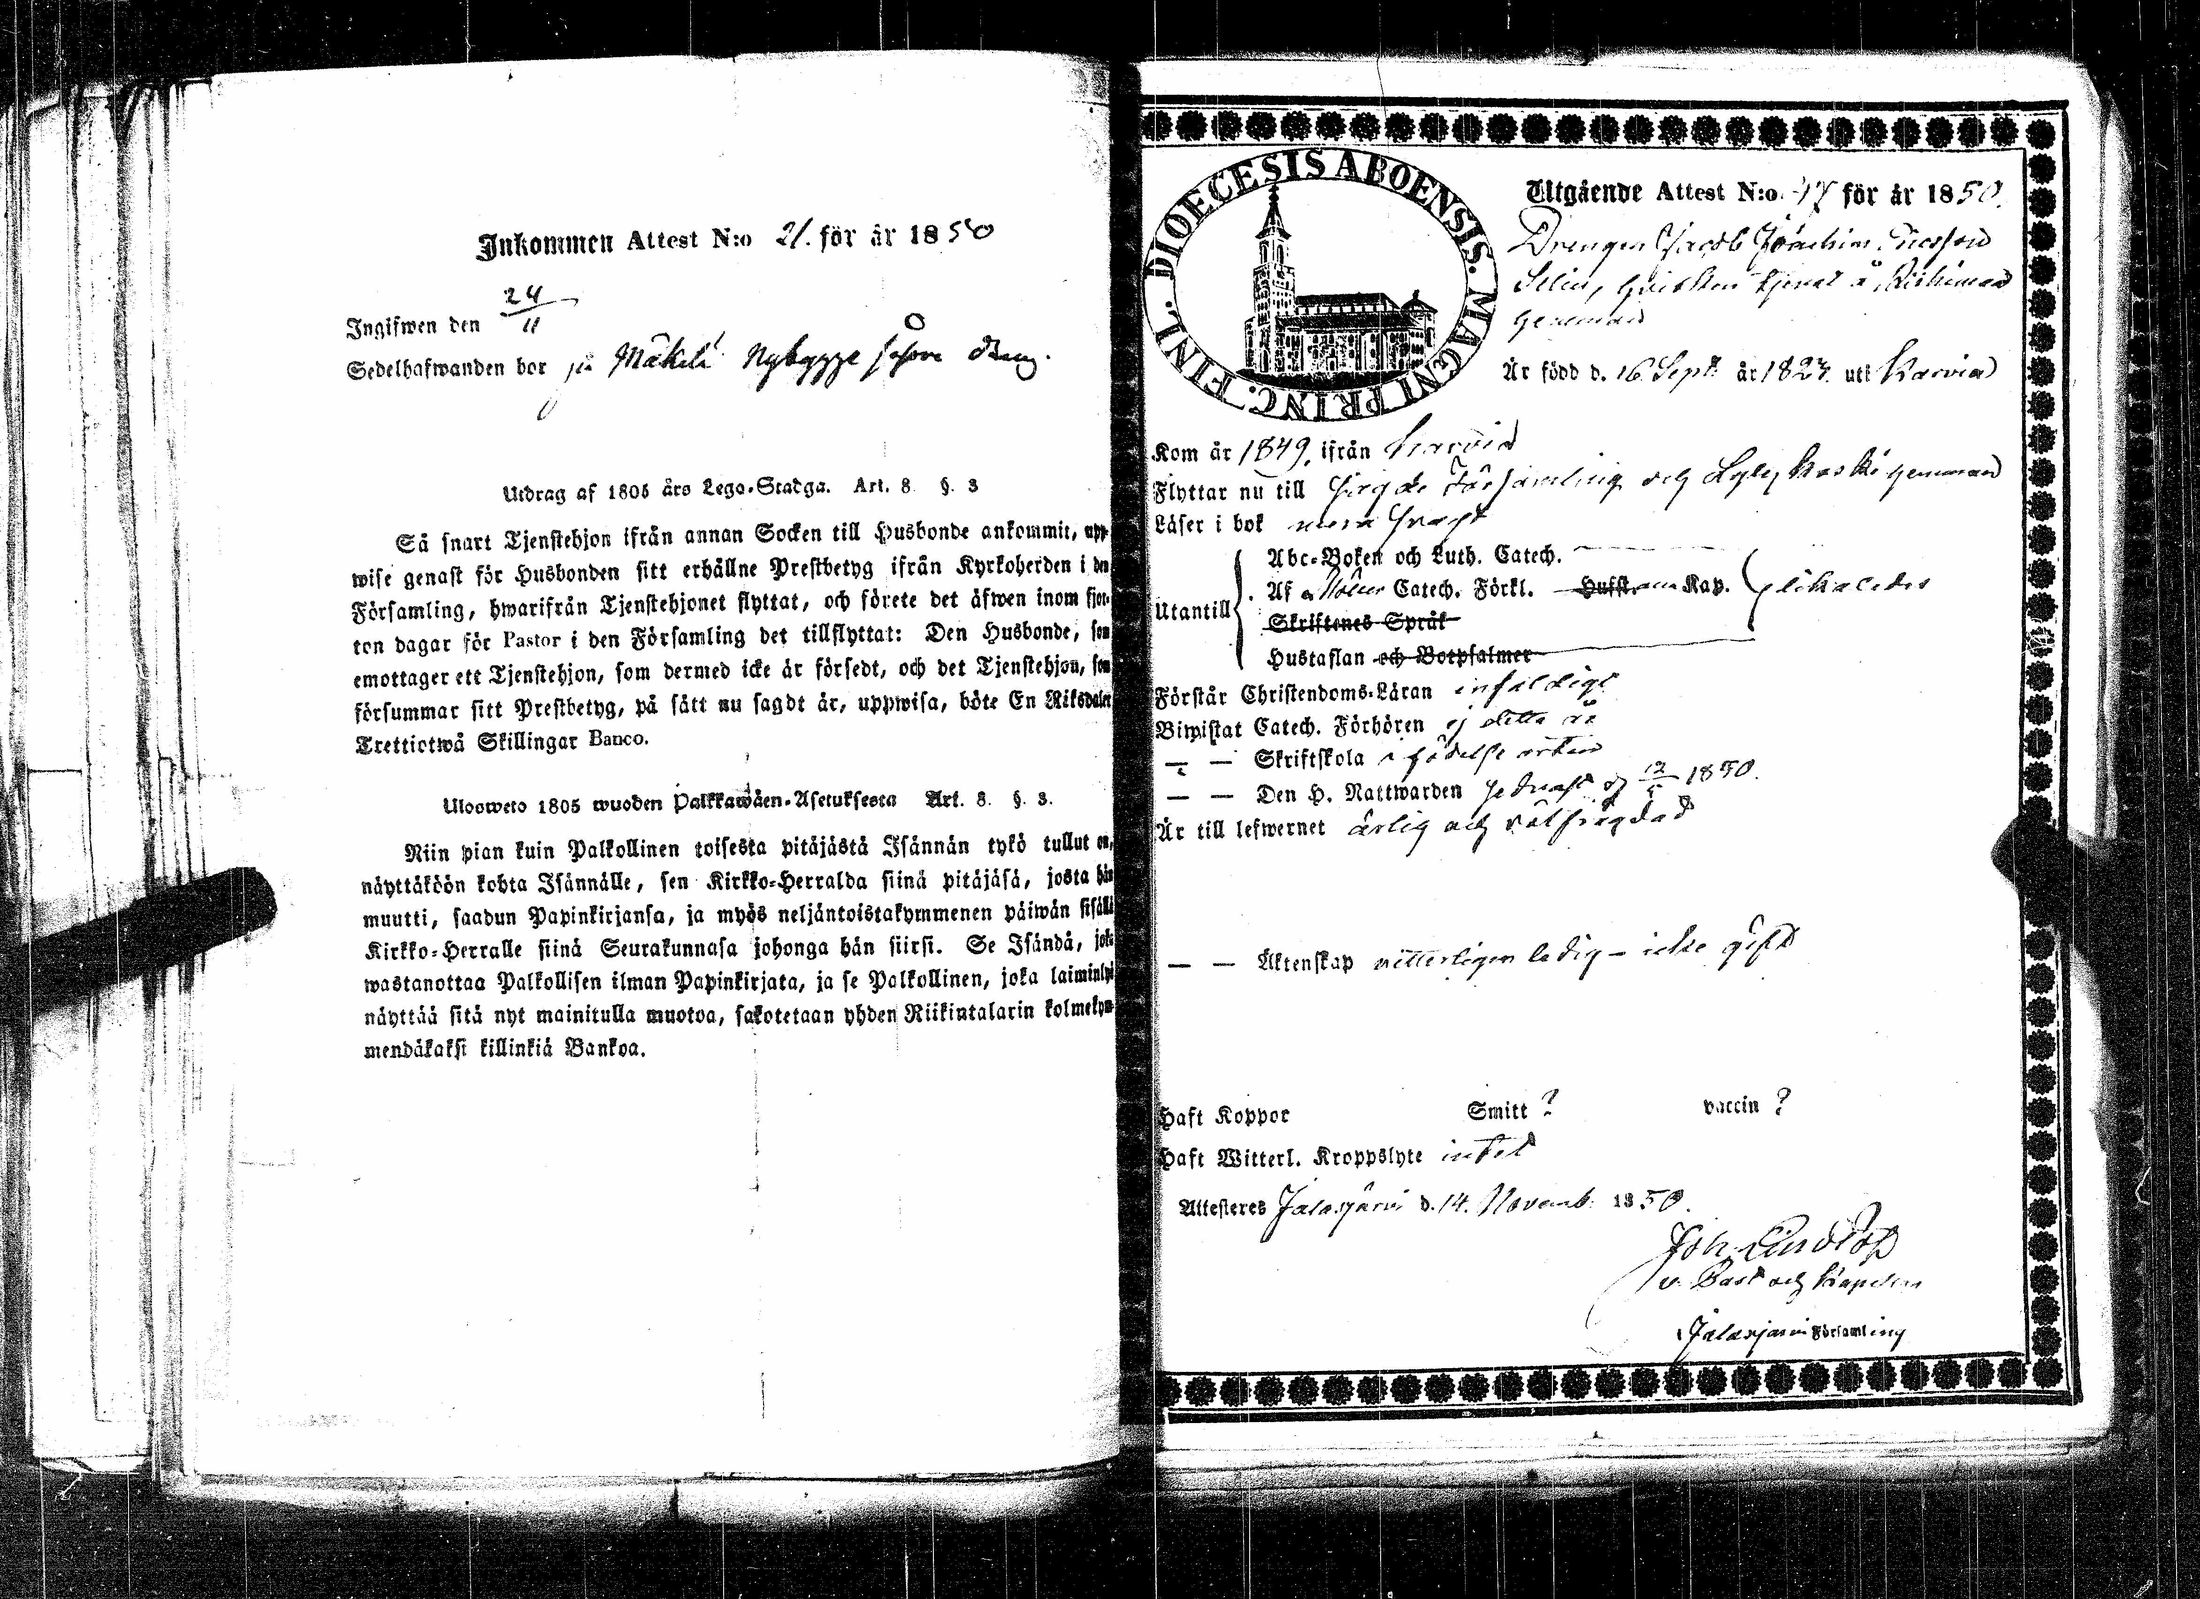 Inkommen Attest N:o 21. för år 1850
Ingifwen den 24/11
Sedelhafwanden bor på Mäkelä Nybygge såsom dräng.
Utdrag af 1805 års Lego-Stadga. Art. 8 §. 3
Så snart Tjenstehjon ifrån annan Socken till Husbonde ankommit, upp-
wise genast för Husbonden sitt erhållne Prestbetyg ifrån Kyrkoherden i den
Församling, hwarifrån Tjenstehjonet flyttat, och förete det äfwen inom fjor-
ton dagar för Pastor i den Församling det tillflyttat: Den Husbonde, som
emottager ett Tjenstehjon, som dermed icke är försedt, och det Tjenstehjon, som
försummar sitt Prestbetyg, på sätt nu sagdt är, uppwisa, böte En Riksdaler
Trettiotwå Skillingar Banco.
Ulosweto 1805 wuoden Palkkawäen-Asetuksesta Art. 8. §. 3.
Niin pian kuin Palkollinen toisesta pitäjästä Isännän tykö tullut on,
näyttäköön kohta Isännälle, sen Kirkko-Herralda siinä pitäjäsä, josta hän
muutti, saadun Papinkirjansa, ja myös neljäntoistakymmenen päiwän sisällä
Kirkko-Herralle siinä Seurakunnasa johonga hän siirsi. Se Isändä, joka
wastanottaa Palkollisen ilman Papinkirjata, ja se Palkollinen, joka laiminlyö
näyttää sitä nyt mainitulla muotoa, sakotetaan yhden Riikintalarin kolmekym-
mendäkaksi killinkiä Bankoa.
DIOECESIS ABOENSIS. MAGNI PRINC. FINL.
Utgående Attest N:o 47 för år 1850.
Drengen Jacob Joachim Ericsson
tjenat å
hemman
Är född d. 16 Sept. år 1827. uti Karvia
Kom år 1849, ifrån Karvia
Flyttar nu till församling och hemman
Läser i bok
Utantill
Abc-Boken och Luth. Catech.
Af Catech. Förkl. Kap. likaledes
Skriftenes Språk
Hustaflan och Botpsalmer
Förstår Christendoms-Läran enfaldigt
Biwistat Catech. Förhören ej detta år
— — Skriftskola i födelse orten
— — Den H. Nattwarden sednast d. 12/5 1850.
Är till lefwernet ärlig och välfrägdad
— — Äktenskap witterligen ledig – icke gift
Haft Koppor Smitt ? vaccin ?
Haft Witterl. Kroppslyte intet
Attesteres Jalasjärvi d. 14. Novemb. 1850.
Joh.
v. Past och Kapellan
Jalasjärvi Församling